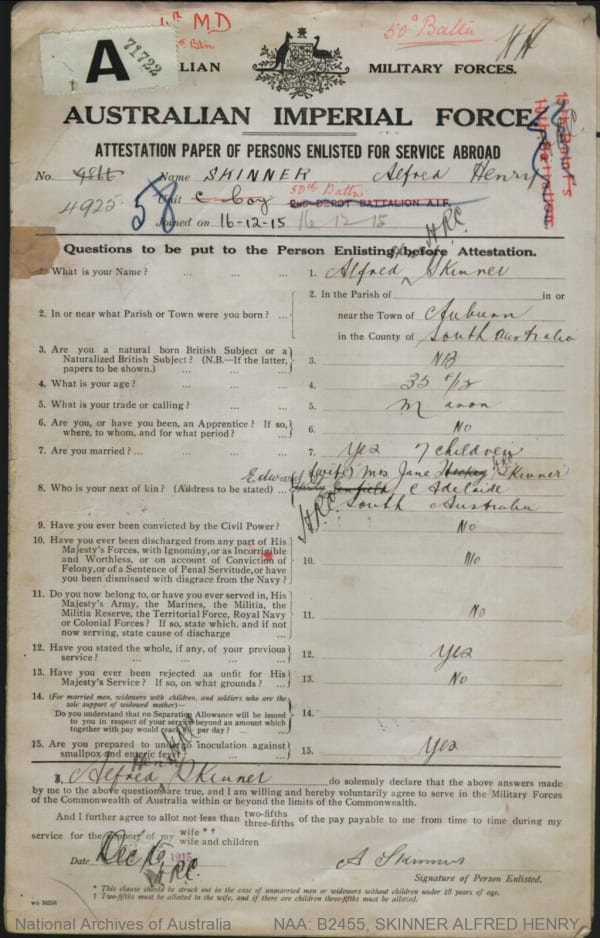 M D
50th Battn
A
71722
MILITARY FORCES.
AUSTRALIAN IMPERIAL FORCE
ATTESTATION PAPER OF PERSONS ENLISTED FOR SERVICE ABROAD
No. Name SKINNER Alfred Henry
4925 58 Unit C Coy 50th Battn 2ND DEPOT BATTALION A.I.F.
Joined on 16-12-15 16-12-15
Questions to be put to the Person Enlisting before Attestation.
1. What is your Name? ... ... ... 1. Alfred Skinner H.R.C.
2. In or near what Parish or Town were you born? ... 2. In the Parish of in or
near the Town of Auburn
in the County of South Australia
3. Are you a natural born British Subject or a
Naturalized British Subject? (N.B.—If the latter,
papers to be shown.) ... ... 3. NB
4. What is your age? ... ... ... 4. 35
5. What is your trade or calling? ... ... 5. Mason
6. Are you, or have you been, an Apprentice? If so,
where, to whom, and for what period? ... 6. No
7. Are you married? ... ... ... 7. Yes 7 children
8. Who is your next of kin? (Address to be stated) ... (wife) Mrs Jane Skinner
Edward Enfield Adelaide
South Australia
H.R.C.
9. Have you ever been convicted by the Civil Power? No
10. Have you ever been discharged from any part of His
Majesty's Forces, with Ignominy, or as Incorrigible
and Worthless, or on account of Conviction of
Felony, or of a Sentence of Penal Servitude, or have
you been dismissed with disgrace from the Navy? 10. No
11. Do you now belong to, or have you ever served in, His
Majesty's Army, the Marines, the Militia, the
Militia Reserve, the Territorial Force, Royal Navy
or Colonial Forces? If so, state which, and if not
now serving, state cause of discharge 11. No
12. Have you stated the whole, if any, of your previous
service? ... ... ... ... 12. Yes
13. Have you ever been rejected as unfit for His
Majesty's Service? If so, on what grounds? ... 13. No
14. (For married men, widowers with children, and soldiers who are the
sole support of widowed mother)—
Do you understand that no Separation Allowance will be issued
to you in respect of your service beyond an amount which
together with pay would reach per day? ... 14.
15. Are you prepared to undergo inoculation against
smallpox and enteric fever? 15. Yes
I, Alfred Henry Skinner do solemnly declare that the above answers made
by me to the above questions are true, and I am willing and hereby voluntarily agree to serve in the Military Forces
of the Commonwealth of Australia within or beyond the limits of the Commonwealth.
And I further agree to allot not less than two-fifths three-fifths of the pay payable to me from time to time during my
service for the support of my wife * † wife and children
Date Dec 16 1915 H.R.C. A Skinner
Signature of Person Enlisted.
* This clause should be struck out in the case of unmarried men or widowers without children under 18 years of age.
† Two-fifths must be allotted to the wife, and if there are children three-fifths must be allotted.
National Archives of Australia NAA: B2455, SKINNER ALFRED HENRY